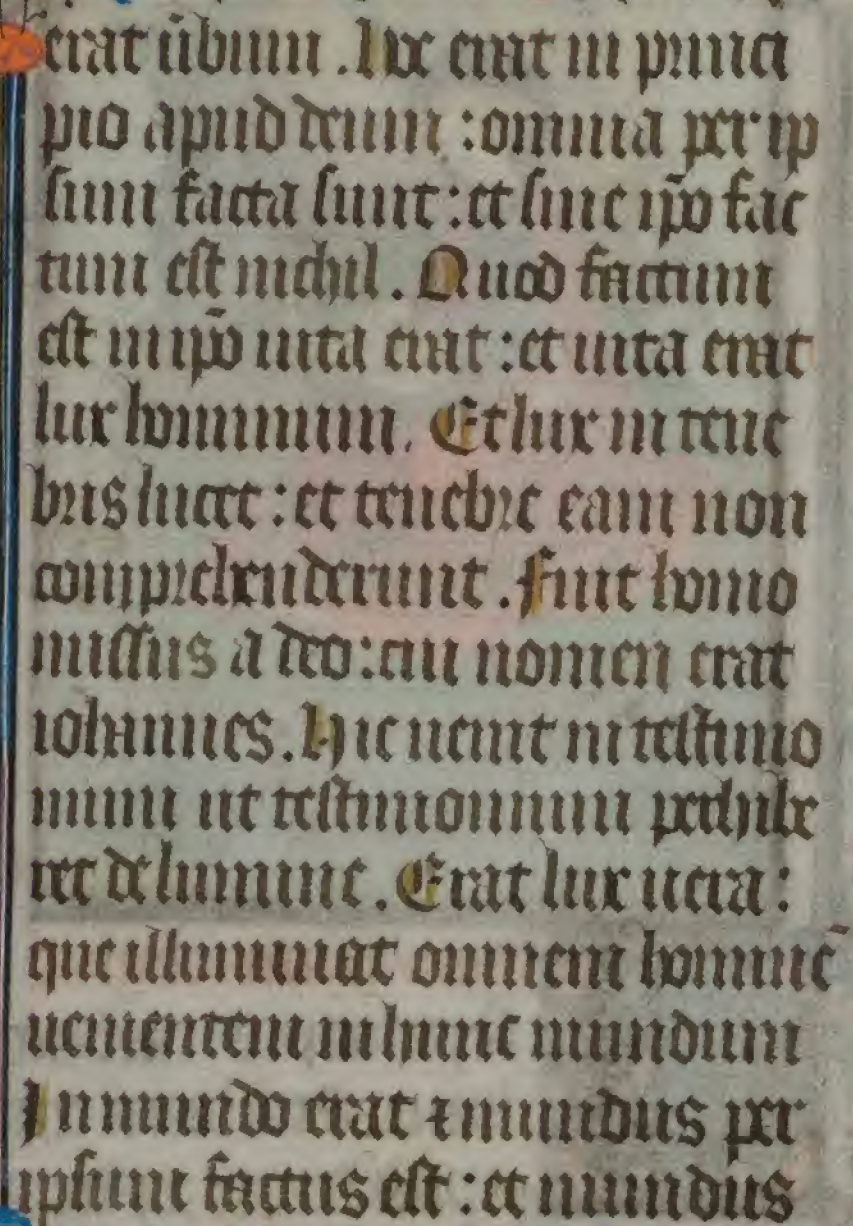 erat ūbum. Hoc erat in princi
pio apud deum: omnia per ip
sum facta sunt: et sine ip̄o fac
tum est nichil. Quod factum
est in ip̄o uita erat: et uita erat
lux hominum. Et lux in tene
bris lucet: et tenebre eam non
comprehenderunt. Fuit homo
missus a deo: cui nomen erat
iohannes. Hic uenit in testimo
nium ut testimonium perhibe
ret de lumine. Erat lux uera:
que illuminat omnem hominē
uenientem in hunc mundum
In mundo erat ⁊ mundus per
ipsum factus est: et mundus